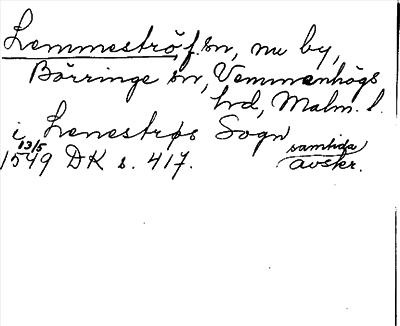 Lemmeströ, f. sn, nu by,
Börringe sn, Vemmenhögs
hd, Malm. l.
i Lenestrøs Sogn
13/5 1549 DK s. 417. samtida avskr.